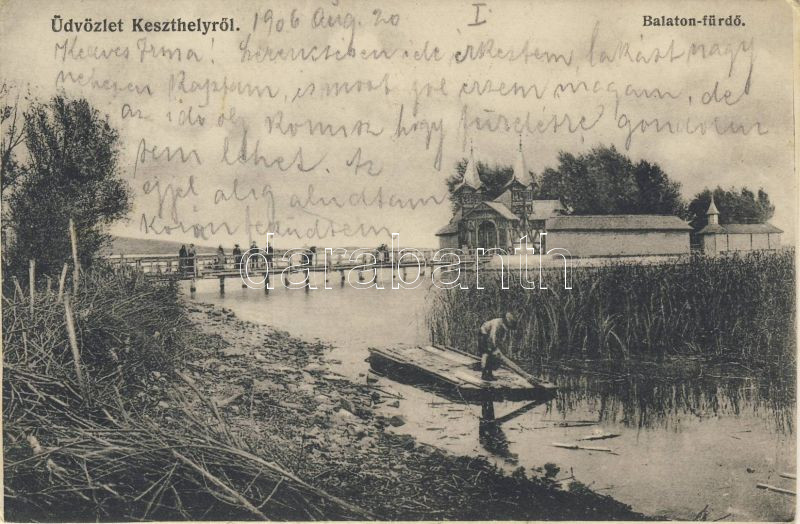 Üdvözlet Keszthelyről. 1906 Aug. 20 I Balaton-fürdő.
Kedves Irma! Szerencsésen ide érkeztem, lakást nagy
nehezen kaptam, és most jól érzem magam, de
az idő oly komisz hogy fürdésre gondolni
sem lehet. Az
éjjel alig aludtam
korán feküdtem
darabanth